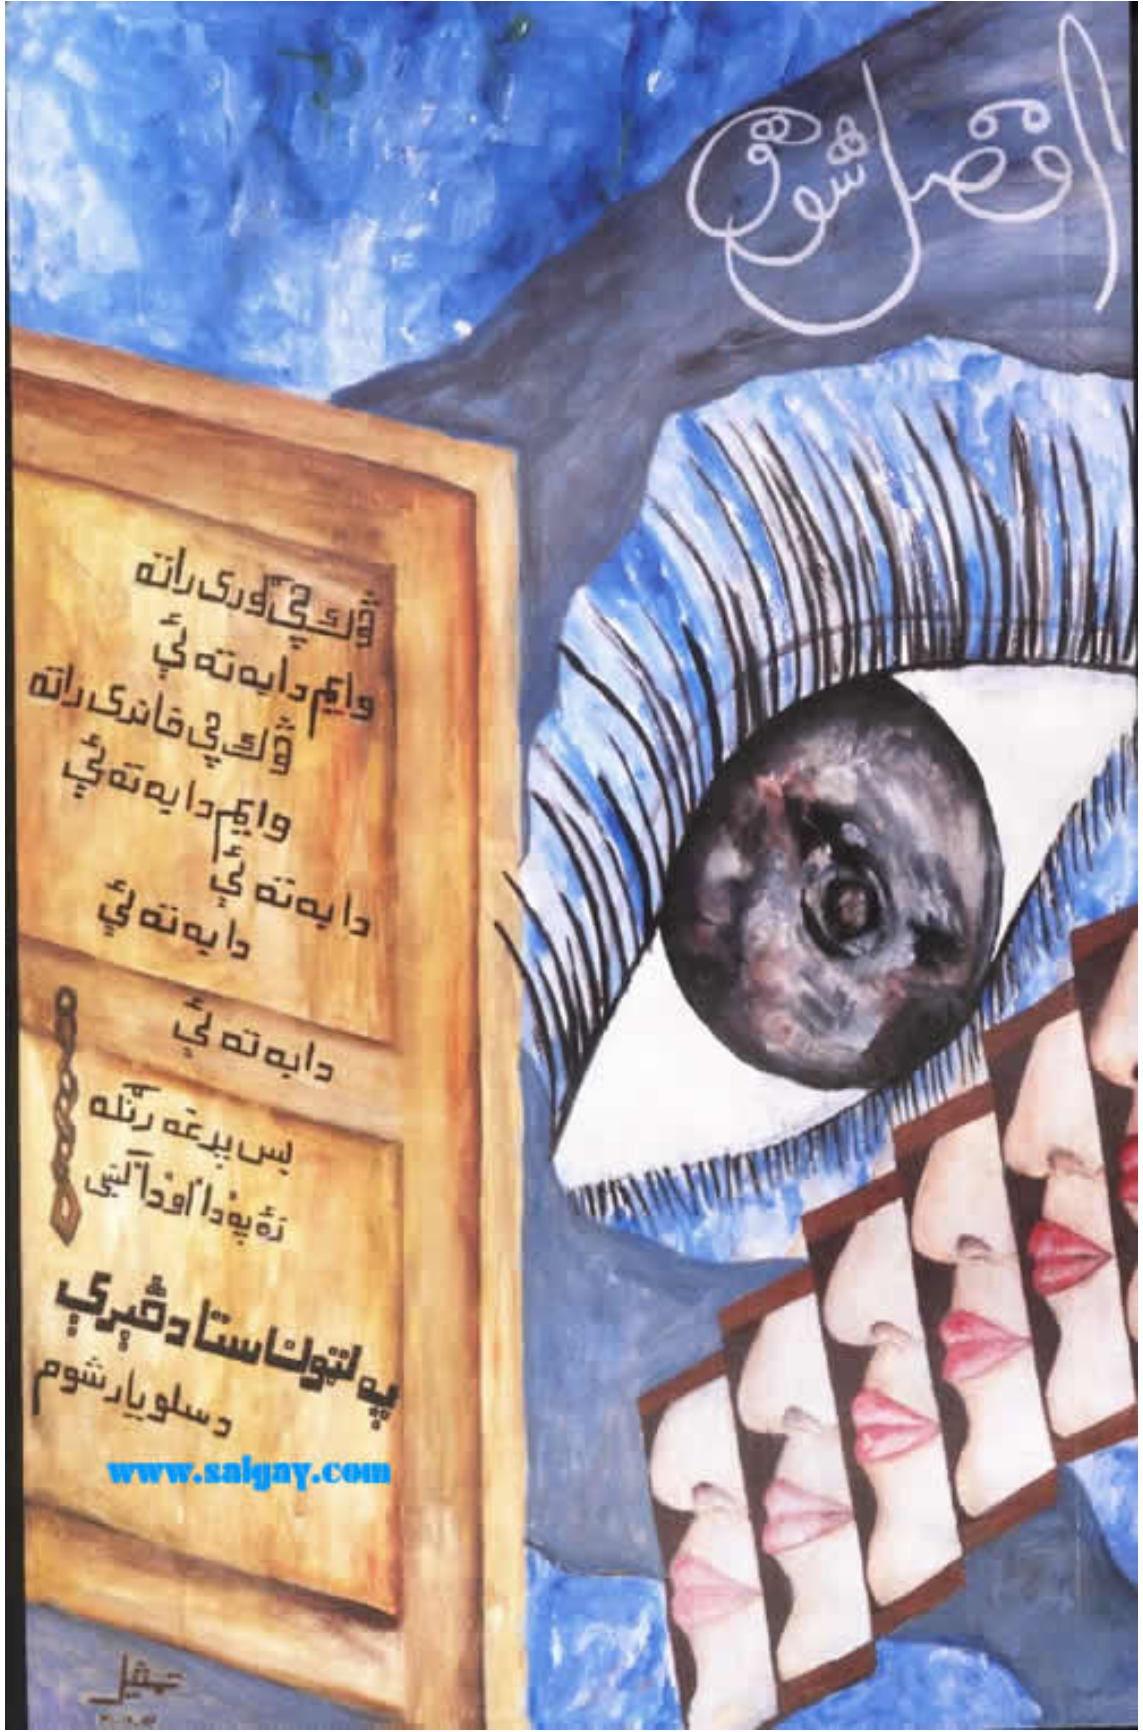 افضل شوق
څوك چې ګوري راته
وايم دا به ته ئې
څوك چې خاندي راته
وايم دا به ته ئې
دا به ته ئې
دا به ته ئې
دا به ته ئې
بس پدغه رنګه
زۀ په دا او دا كښې
په لټون ستا د څېرې
د سلو يار شوم
www.salgay.com